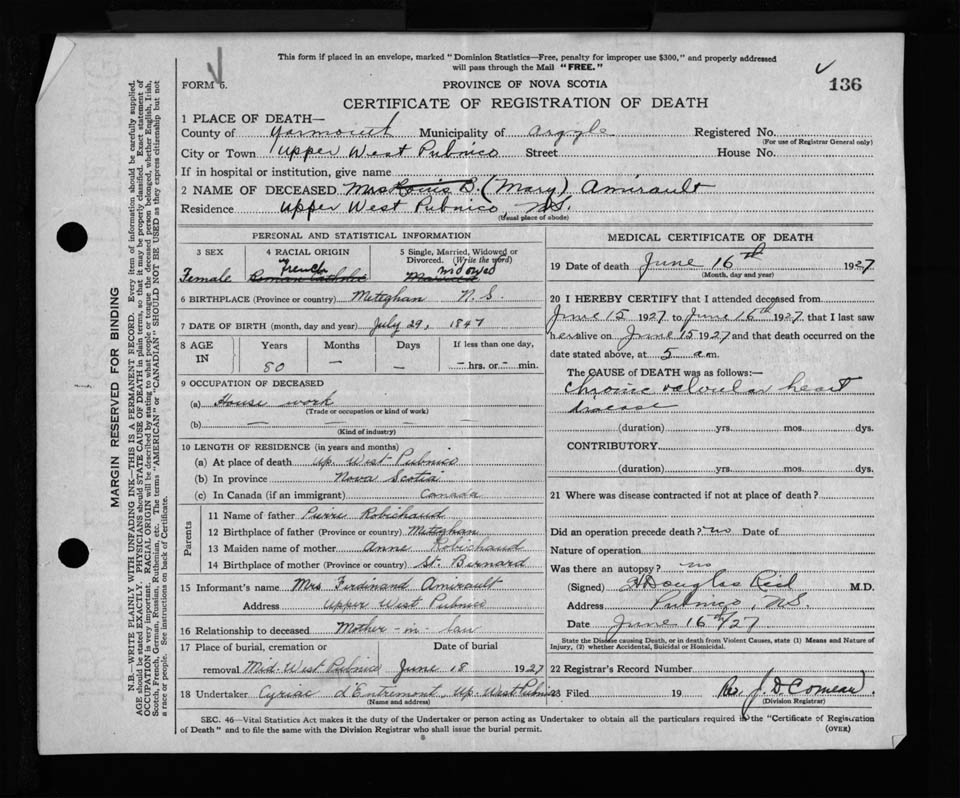 This form if placed in an envelope, marked "Dominion Statistics—Free, penalty for improper use $300," and properly addressed
will pass through the Mail "FREE."
FORM 6.
PROVINCE OF NOVA SCOTIA
136
CERTIFICATE OF REGISTRATION OF DEATH
1 PLACE OF DEATH—
County of Yarmouth Municipality of Argyle Registered No.
(For use of Registrar General only)
City or Town Upper West Pubnico Street House No.
If in hospital or institution, give name
2 NAME OF DECEASED Mrs Louis B. (Mary) Amirault
Residence Upper West Pubnico, N.S.
(Usual place of abode)
PERSONAL AND STATISTICAL INFORMATION
3 SEX 4 RACIAL ORIGIN 5 Single, Married, Widowed or
Divorced. (Write the word)
French widowed
Female Roman Catholic Married
6 BIRTHPLACE (Province or country) Meteghan N.S.
7 DATE OF BIRTH (month, day and year) July 29, 1847
8 AGE IN Years Months Days If less than one day,
80 — — — hrs. or — min.
9 OCCUPATION OF DECEASED
(a) House work
(Trade or occupation or kind of work)
(b) — — — —
(Kind of industry)
10 LENGTH OF RESIDENCE (in years and months)
(a) At place of death Up. West Pubnico
(b) In province Nova Scotia
(c) In Canada (if an immigrant) Canada
Parents
11 Name of father Pierre Robichaud
12 Birthplace of father (Province or country) Meteghan
13 Maiden name of mother Anne Robichaud
14 Birthplace of mother (Province or country) St. Bernard
15 Informant's name Mrs Ferdinand Amirault
Address Upper West Pubnico
16 Relationship to deceased Mother-in-law
17 Place of burial, cremation or Date of burial
removal Mid. West Pubnico June 18 1927
18 Undertaker Cyriac d'Entremont, Up. West Pubnico
(Name and address)
MEDICAL CERTIFICATE OF DEATH
19 Date of death June 16th 1927
(Month, day and year)
20 I HEREBY CERTIFY that I attended deceased from
June 15 1927 to June 16th 1927 that I last saw
her alive on June 15 1927 and that death occurred on the
date stated above, at 5 a.m.
The CAUSE of DEATH was as follows:—
Chronic valvular heart
disease
(duration) yrs. mos. dys.
CONTRIBUTORY
(duration) yrs. mos. dys.
21 Where was disease contracted if not at place of death?
Did an operation precede death? no Date of
Nature of operation
Was there an autopsy? no
(Signed) H Douglas Reid M.D.
Address Pubnico, N.S.
Date June 16th/27
State the Disease causing Death, or in death from Violent Causes, state (1) Means and Nature of
Injury, (2) whether Accidental, Suicidal or Homicidal.
22 Registrar's Record Number
23 Filed 19 Rev. J. D. Comeau.
(Division Registrar)
SEC. 46—Vital Statistics Act makes it the duty of the Undertaker or person acting as Undertaker to obtain all the particulars required in the "Certificate of Registration
of Death" and to file the same with the Division Registrar who shall issue the burial permit.
(OVER)
8
MARGIN RESERVED FOR BINDING
N.B.—WRITE PLAINLY WITH UNFADING INK—THIS IS A PERMANENT RECORD. Every item of information should be carefully supplied.
AGE should be stated EXACTLY. PHYSICIANS should STATE CAUSE OF DEATH in plain terms, so that it may be properly classified. Exact statement of
OCCUPATION is very important. RACIAL ORIGIN will be described by stating to what people or tongue the deceased person belonged, whether English, Irish,
Scotch, French, German, Russian, Ruthenian, etc. The terms "AMERICAN" or "CANADIAN" SHOULD NOT BE USED as they express citizenship but not
a race or people. See instructions on back of Certificate.